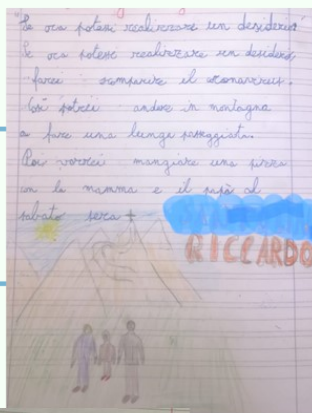 "Se ora potessi realizzare un desiderio"
Se ora potessi realizzare un desiderio,
farei scomparire il coronavirus.
Così potrei andare in montagna
a fare una lunga passeggiata.
Poi vorrei mangiare una pizza
con la mamma e il papà al
sabato sera
RICCARDO